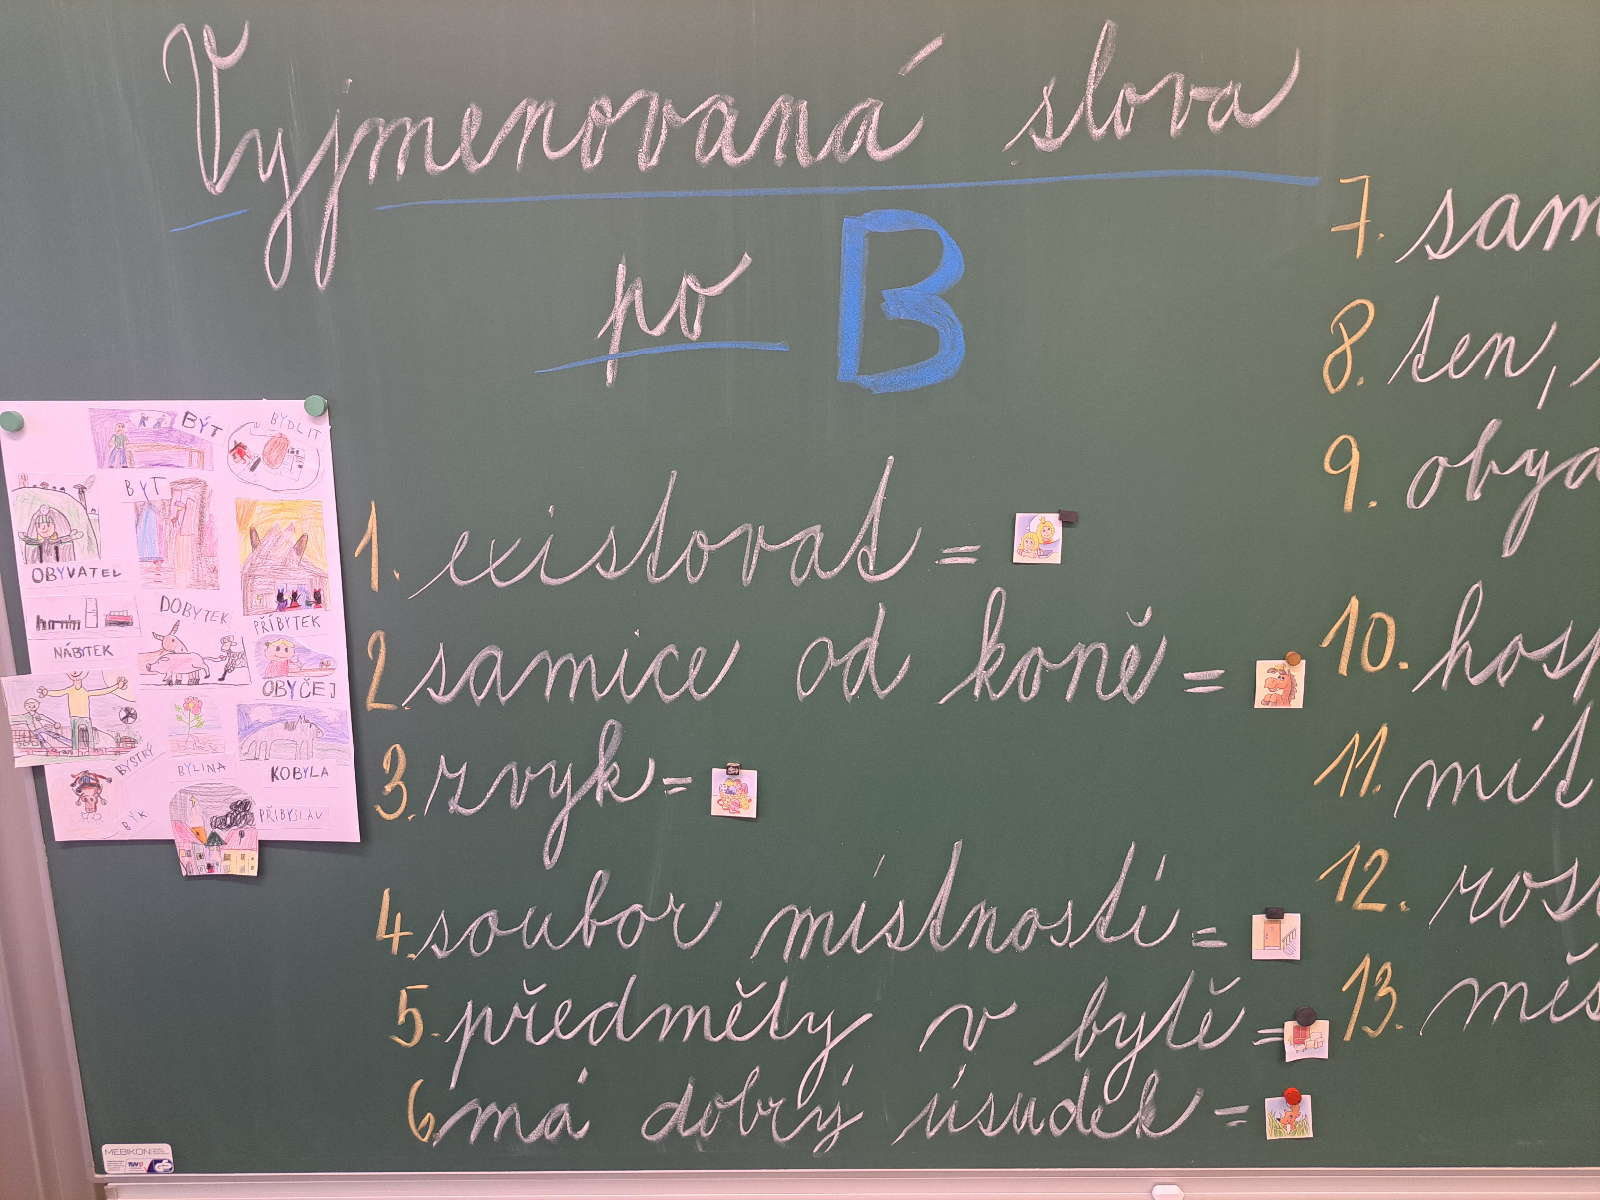 Vyjmenovaná slova
po B
1. existovat =
2. samice od koně =
3. zvyk =
4. soubor místností =
5. předměty v bytě =
6. má dobrý úsudek =
7. sam
8. ten,
9. obyd
10. hosp
11. mít
12. ros
13. měs
BÝT
BYDLIT
BYT
OBYVATEL
DOBYTEK
PŘÍBYTEK
NÁBYTEK
OBYČEJ
BYSTRÝ
BYLINA
KOBYLA
BÝK
PŘIBYSLAV
MEBIKON